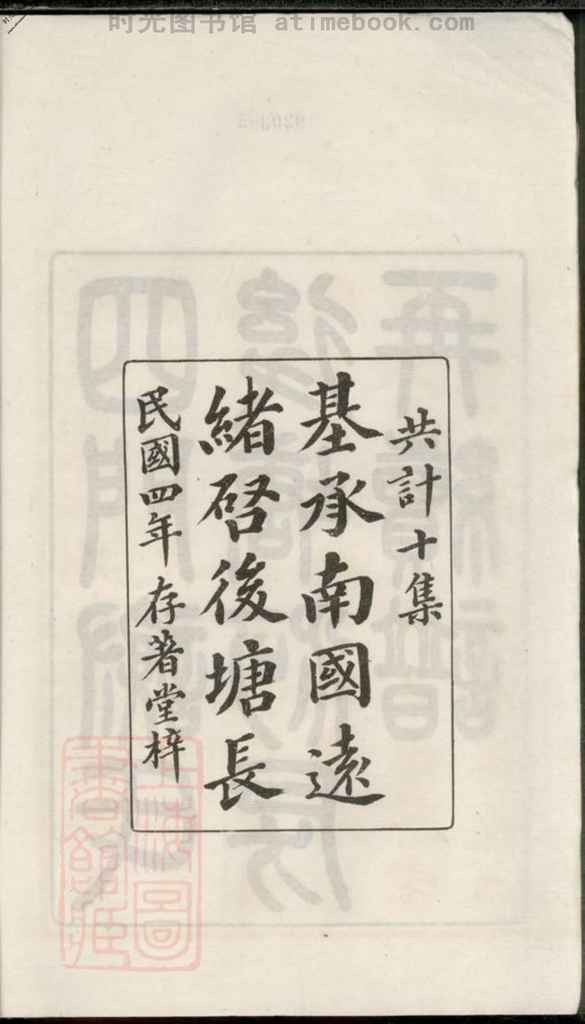 时光图书馆 atimebook.com
共計十集
基承南國遠
緒啓後塘長
民國四年 存著堂梓